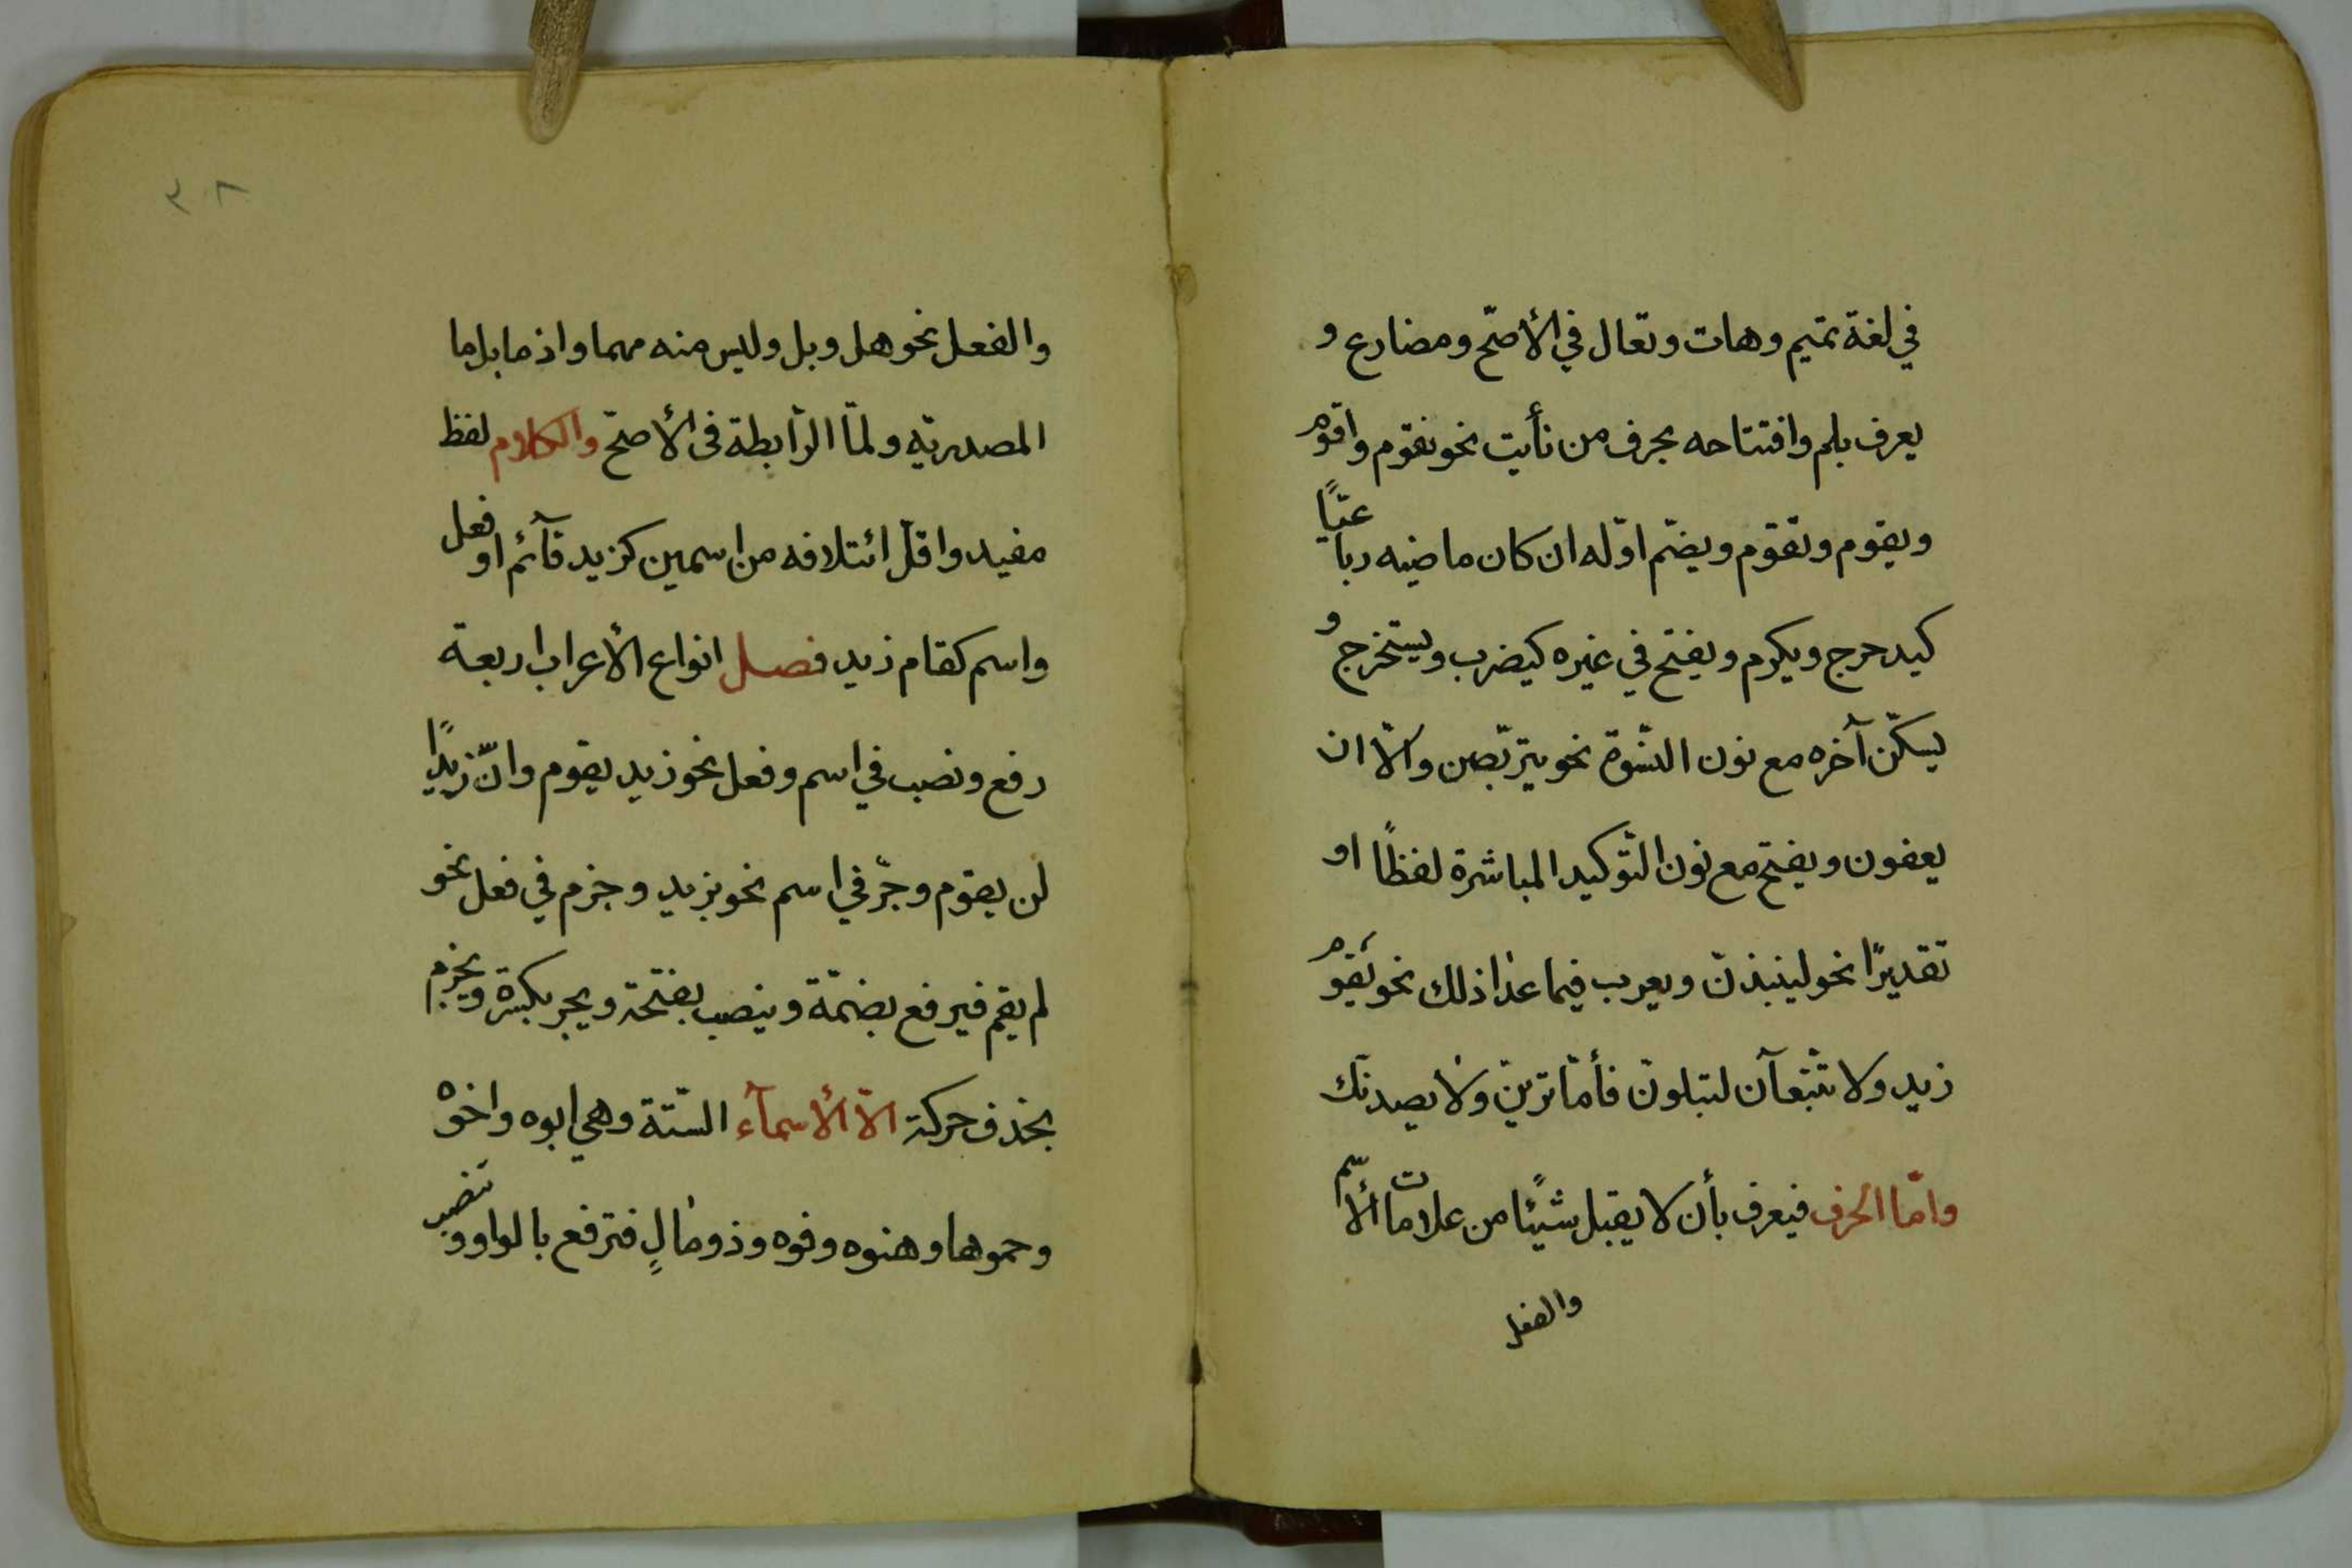 في لغة تميم وهات وتعال في الأصحّ ومضارع و
يعرف بلم وافتتاحه بحرف من نأيت نحو نقوم واقوم
ويقوم وتقوم ويضمّ اوّله ان كان ماضيه رباعيًّا
كيدحرج ويكرم ويفتح في غيره كيضرب ويستخرج و
يسكّن آخره مع نون النّسوة نحو يتربّصن والّا ان
يعفون ويفتح مع نون التّوكيد المباشرة لفظًا او
تقديرًا نحو لينبذنّ ويعرب فيما عدا ذلك نحو يقوم
زيد ولا تتّبعآن لتبلونّ فأمّا ترينّ ولا يصدنّك
وامّا الحرف فيعرف بأن لا يقبل شيئًا من علامات الأسم
والفعل
والفعل نحو هل وبل وليس منه مهما واذ ما بل ما
المصدريّه ولمّا الرّابطة في الأصحّ والكلام لفظ
مفيد واقلّ ائتلافه من اسمين كزيد قآئم او فعل
واسم كقام زيد فصل انواع الأعراب اربعة
رفع ونصب في اسم وفعل نحو زيد يقوم وانّ زيدًا
لن يقوم وجرّ في اسم نحو بزيد وجزم في فعل نحو
لم يقم فيرفع بضمّة وينصب بفتحة ويجر بكسرة ويجزم
بحذف حركة الّا الأسمآء السّتة وهي ابوه واخوه
وحموها وهنوه وفوه وذو مالٍ فترفع بالواو وتنصب